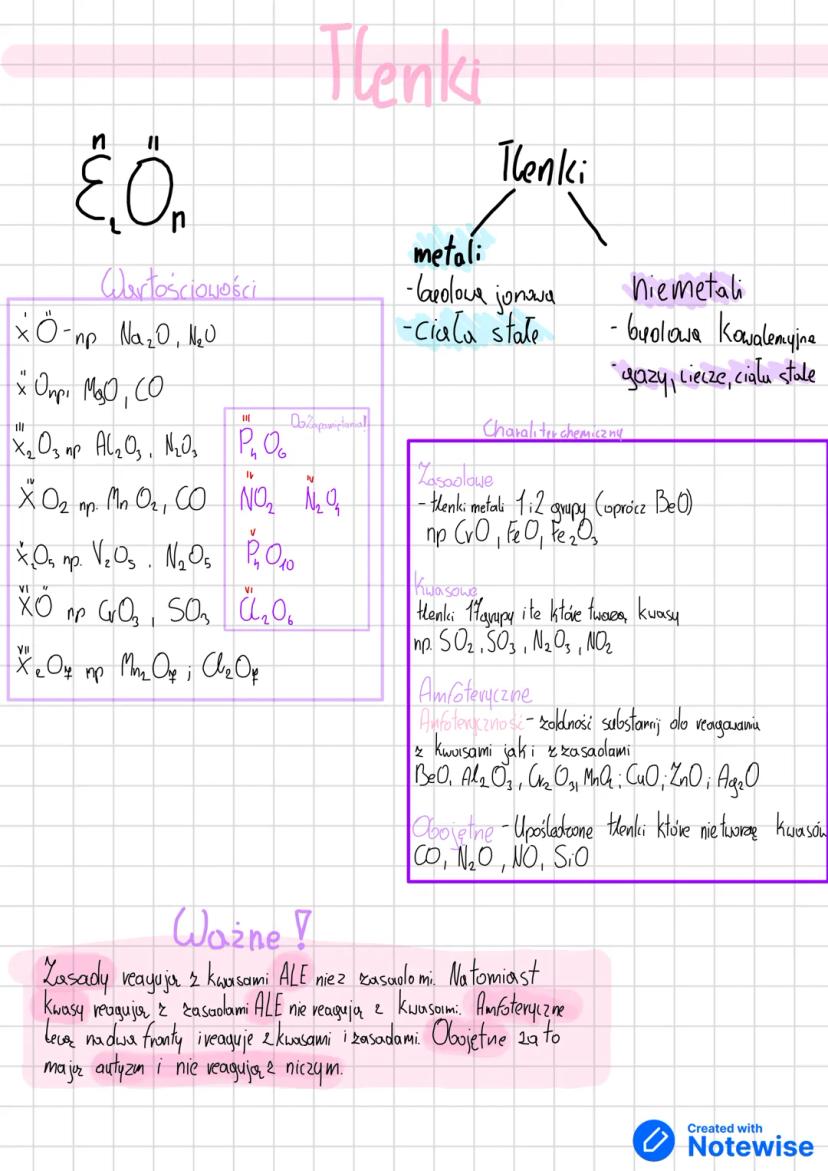 Tlenki
n II
E₂On
Tlenki
metali
- budowa jonowa
- Ciała stałe
niemetali
- budowa kowalencyjna
- gazy, ciecze, ciała stałe
Wartościowości
I II
XO - np Na₂O, N₂O
II
XO np. MgO, CO
III
X₂O₃ np Al₂O₃, N₂O₃
IV
XO₂ np. MnO₂, CO
V
X₂O₅ np. V₂O₅. N₂O₅
VI II
XO np CrO₃, SO₃
VII
X₂O₇ np Mn₂O₇; Cl₂O₇
Do Zapamiętania!
III
P₄O₆
IV IV
NO₂ N₂O₄
V
P₄O₁₀
VI
Cl₂O₆
Charakter chemiczny
Zasadowe
- tlenki metali 1 i 2 grupy (oprócz BeO)
np CrO, FeO, Fe₂O₃
Kwasowe
tlenki 17 grupy i te które tworzą kwasy
np. SO₂, SO₃, N₂O₃, NO₂
Amfoteryczne
Amfoteryczność - zdolność substancji do reagowania
z kwasami jak i z zasadami
BeO, Al₂O₃, Cr₂O₃, MnO₂; CuO; ZnO; Ag₂O
Obojętne - Upośledzone tlenki które nie tworzą kwasów
CO, N₂O, NO, SiO
Ważne!
Zasady reagują z kwasami ALE nie z zasadami. Natomiast
kwasy reagują z zasadami ALE nie reagują z kwasami. Amfoteryczne
lecą na dwa fronty i reaguje z kwasami i zasadami. Obojętne za to
mają autyzm i nie reagują z niczym.
Created with
Notewise